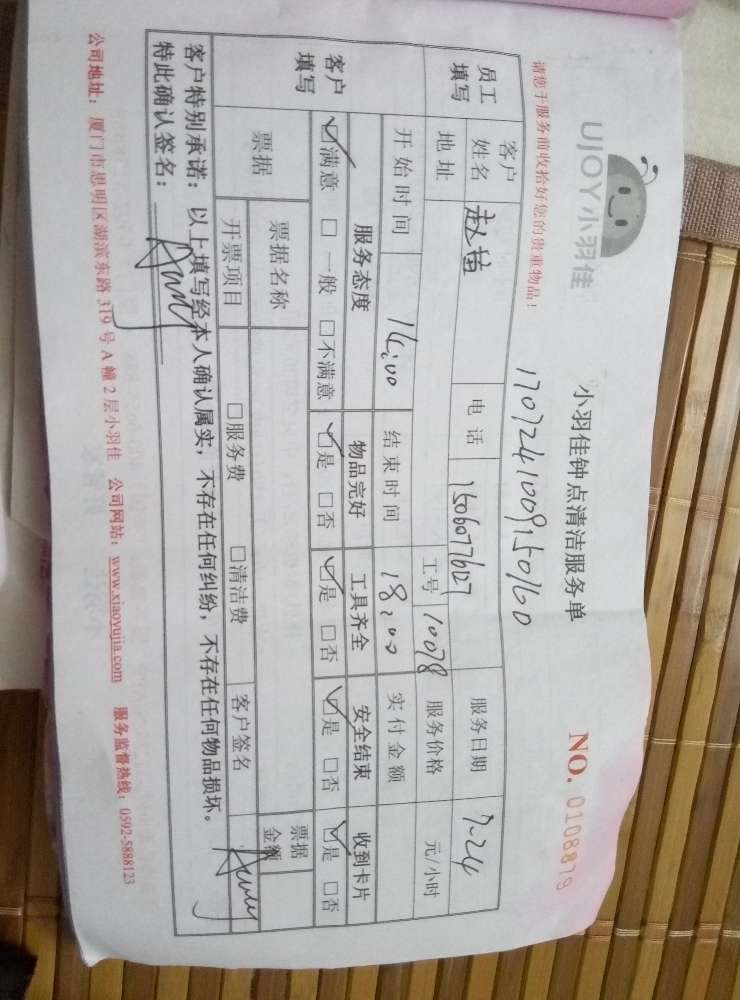 UJOY小羽佳
小羽佳钟点清洁服务单
NO. 0108879
请您于服务前收拾好您的贵重物品!
170724100915060
员工填写
客户姓名 赵苗 电话 1506077627 服务日期 7-24
地址 工号 10078 服务价格 元/小时
开始时间 14:00 结束时间 18:00 实付金额
客户填写
服务态度 物品完好 工具齐全 安全结束 收到卡片
☑满意 □一般 □不满意 ☑是 □否 ☑是 □否 ☑是 □否 ☑是 □否
票据 票据名称 票据金额
开票项目 □服务费 □清洁费 客户签名
客户特别承诺:以上填写经本人确认属实,不存在任何纠纷,不存在任何物品损坏。
特此确认签名:
公司地址:厦门市思明区湖滨东路 319 号 A 幢 2 层小羽佳 公司网站:www.xiaoyujia.com 服务监督热线:0592-5888123